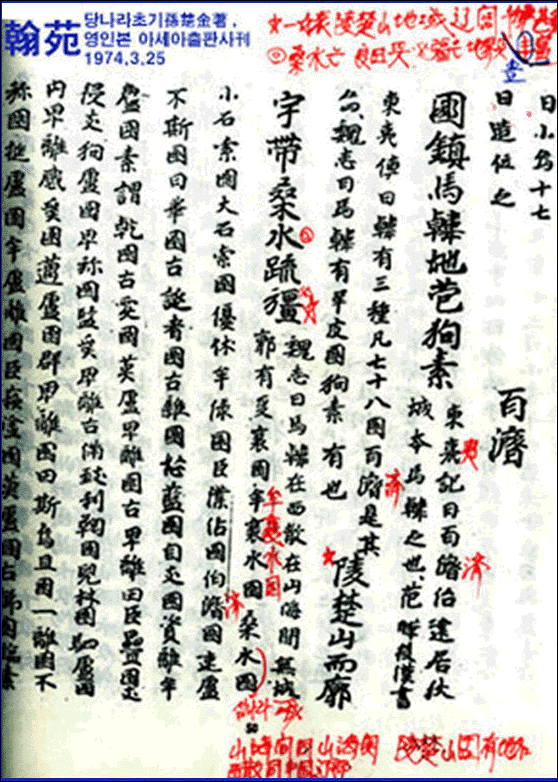 翰苑
당나라초기孫楚金著,
영인본 아세아출판사刊
1974.3.25
曰小烏十七
曰遣位之
百濟
國鎮馬韓地苞狗素
東夷記曰百濟伯建居
城亦馬韓之也范曄後漢書
東夷傳曰韓有三種凡七十八國百濟是其
魏志曰馬韓有卑皮國狗素 有也
陵楚山而廓
宇帶桑水疏疆
魏志曰馬韓在西散在山海間無城
郭有爰襄國牟襄水國桑水國
小石素國大石索國優休牟涿國臣濆佔國伯濟國速盧
不斯國曰華國古誕者國古離國怒藍國自支國資離牟
盧國素謂乾國古爰國莫盧卑離國古卑離國臣釁國支
侵支狗盧國卑弥國監奚卑離古滿致利鞠國兒林國駟盧國
內卑離感奚國邁盧國群卑離國田斯烏旦國一離國不
弥國挺盧國牟盧離國臣蘇塗國莫盧國古臈國臨素